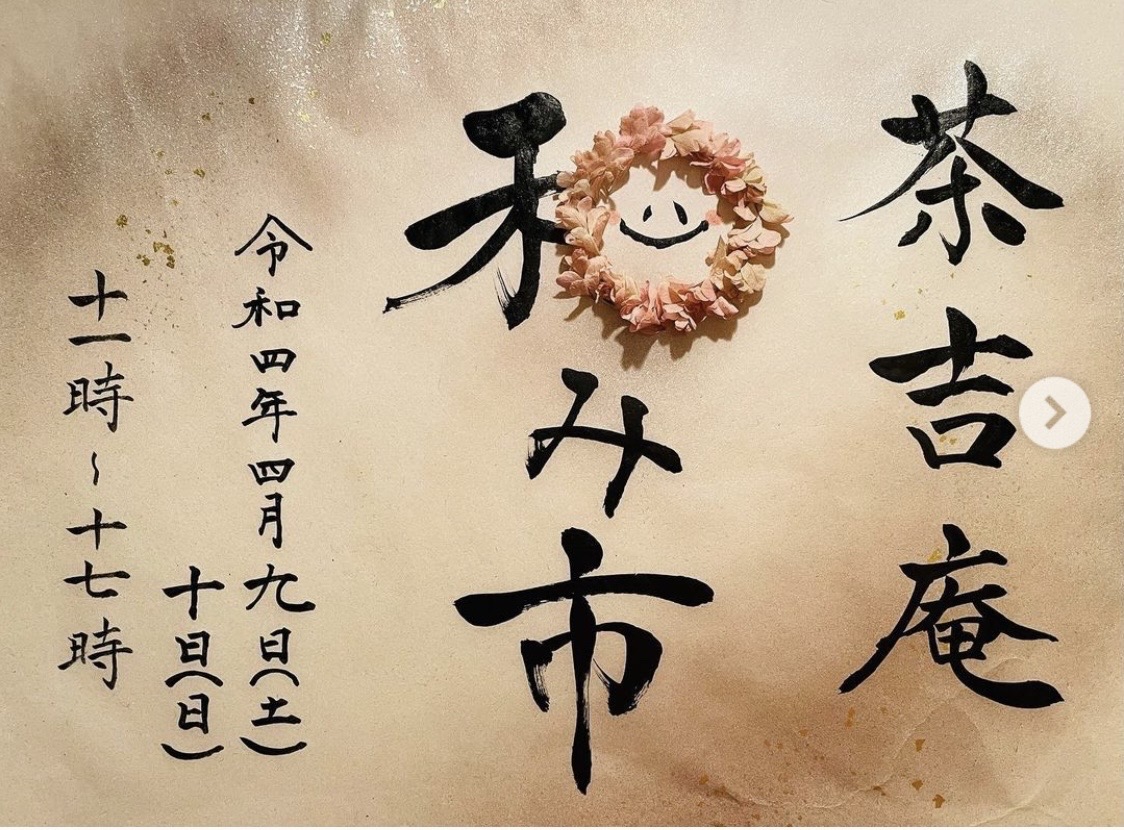 茶吉庵
和み市
令和四年四月九日(土)
十日(日)
十一時~十七時